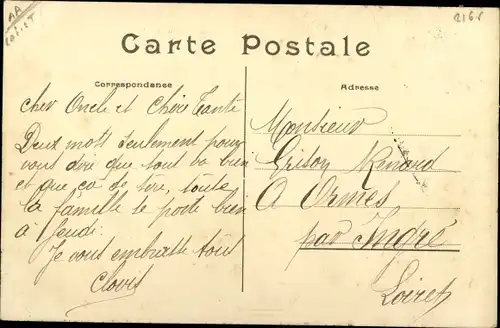 Carte Postale
Correspondance
cher Oncle et Chère Tante
Deux mots seulement pour
vous dire que tout va bien
et que ça de toute
la famille se porte bien
à Jeudi
Je vous embrasse tous
Clovis
Adresse
Monsieur
Grison Renard
A Ormes
par Ingré
Loiret